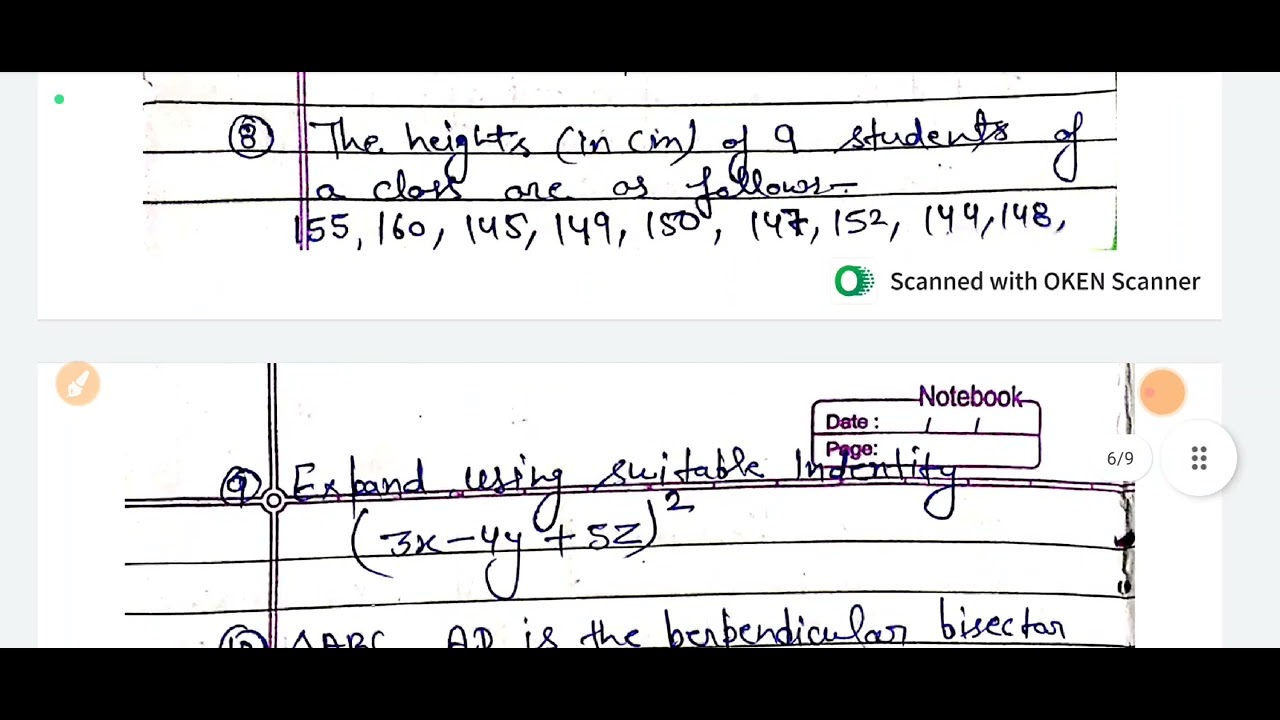 ⑧ The heights (in cm) of 9 students of
a class are as follows-
155, 160, 145, 149, 150, 147, 152, 144, 148,
Scanned with OKEN Scanner
Notebook
Date : / /
Page:
6/9
⑨ Expand using suitable Indentity
(3x-4y+5z)²
⑩ ΔABC AD is the berbendicular bisector